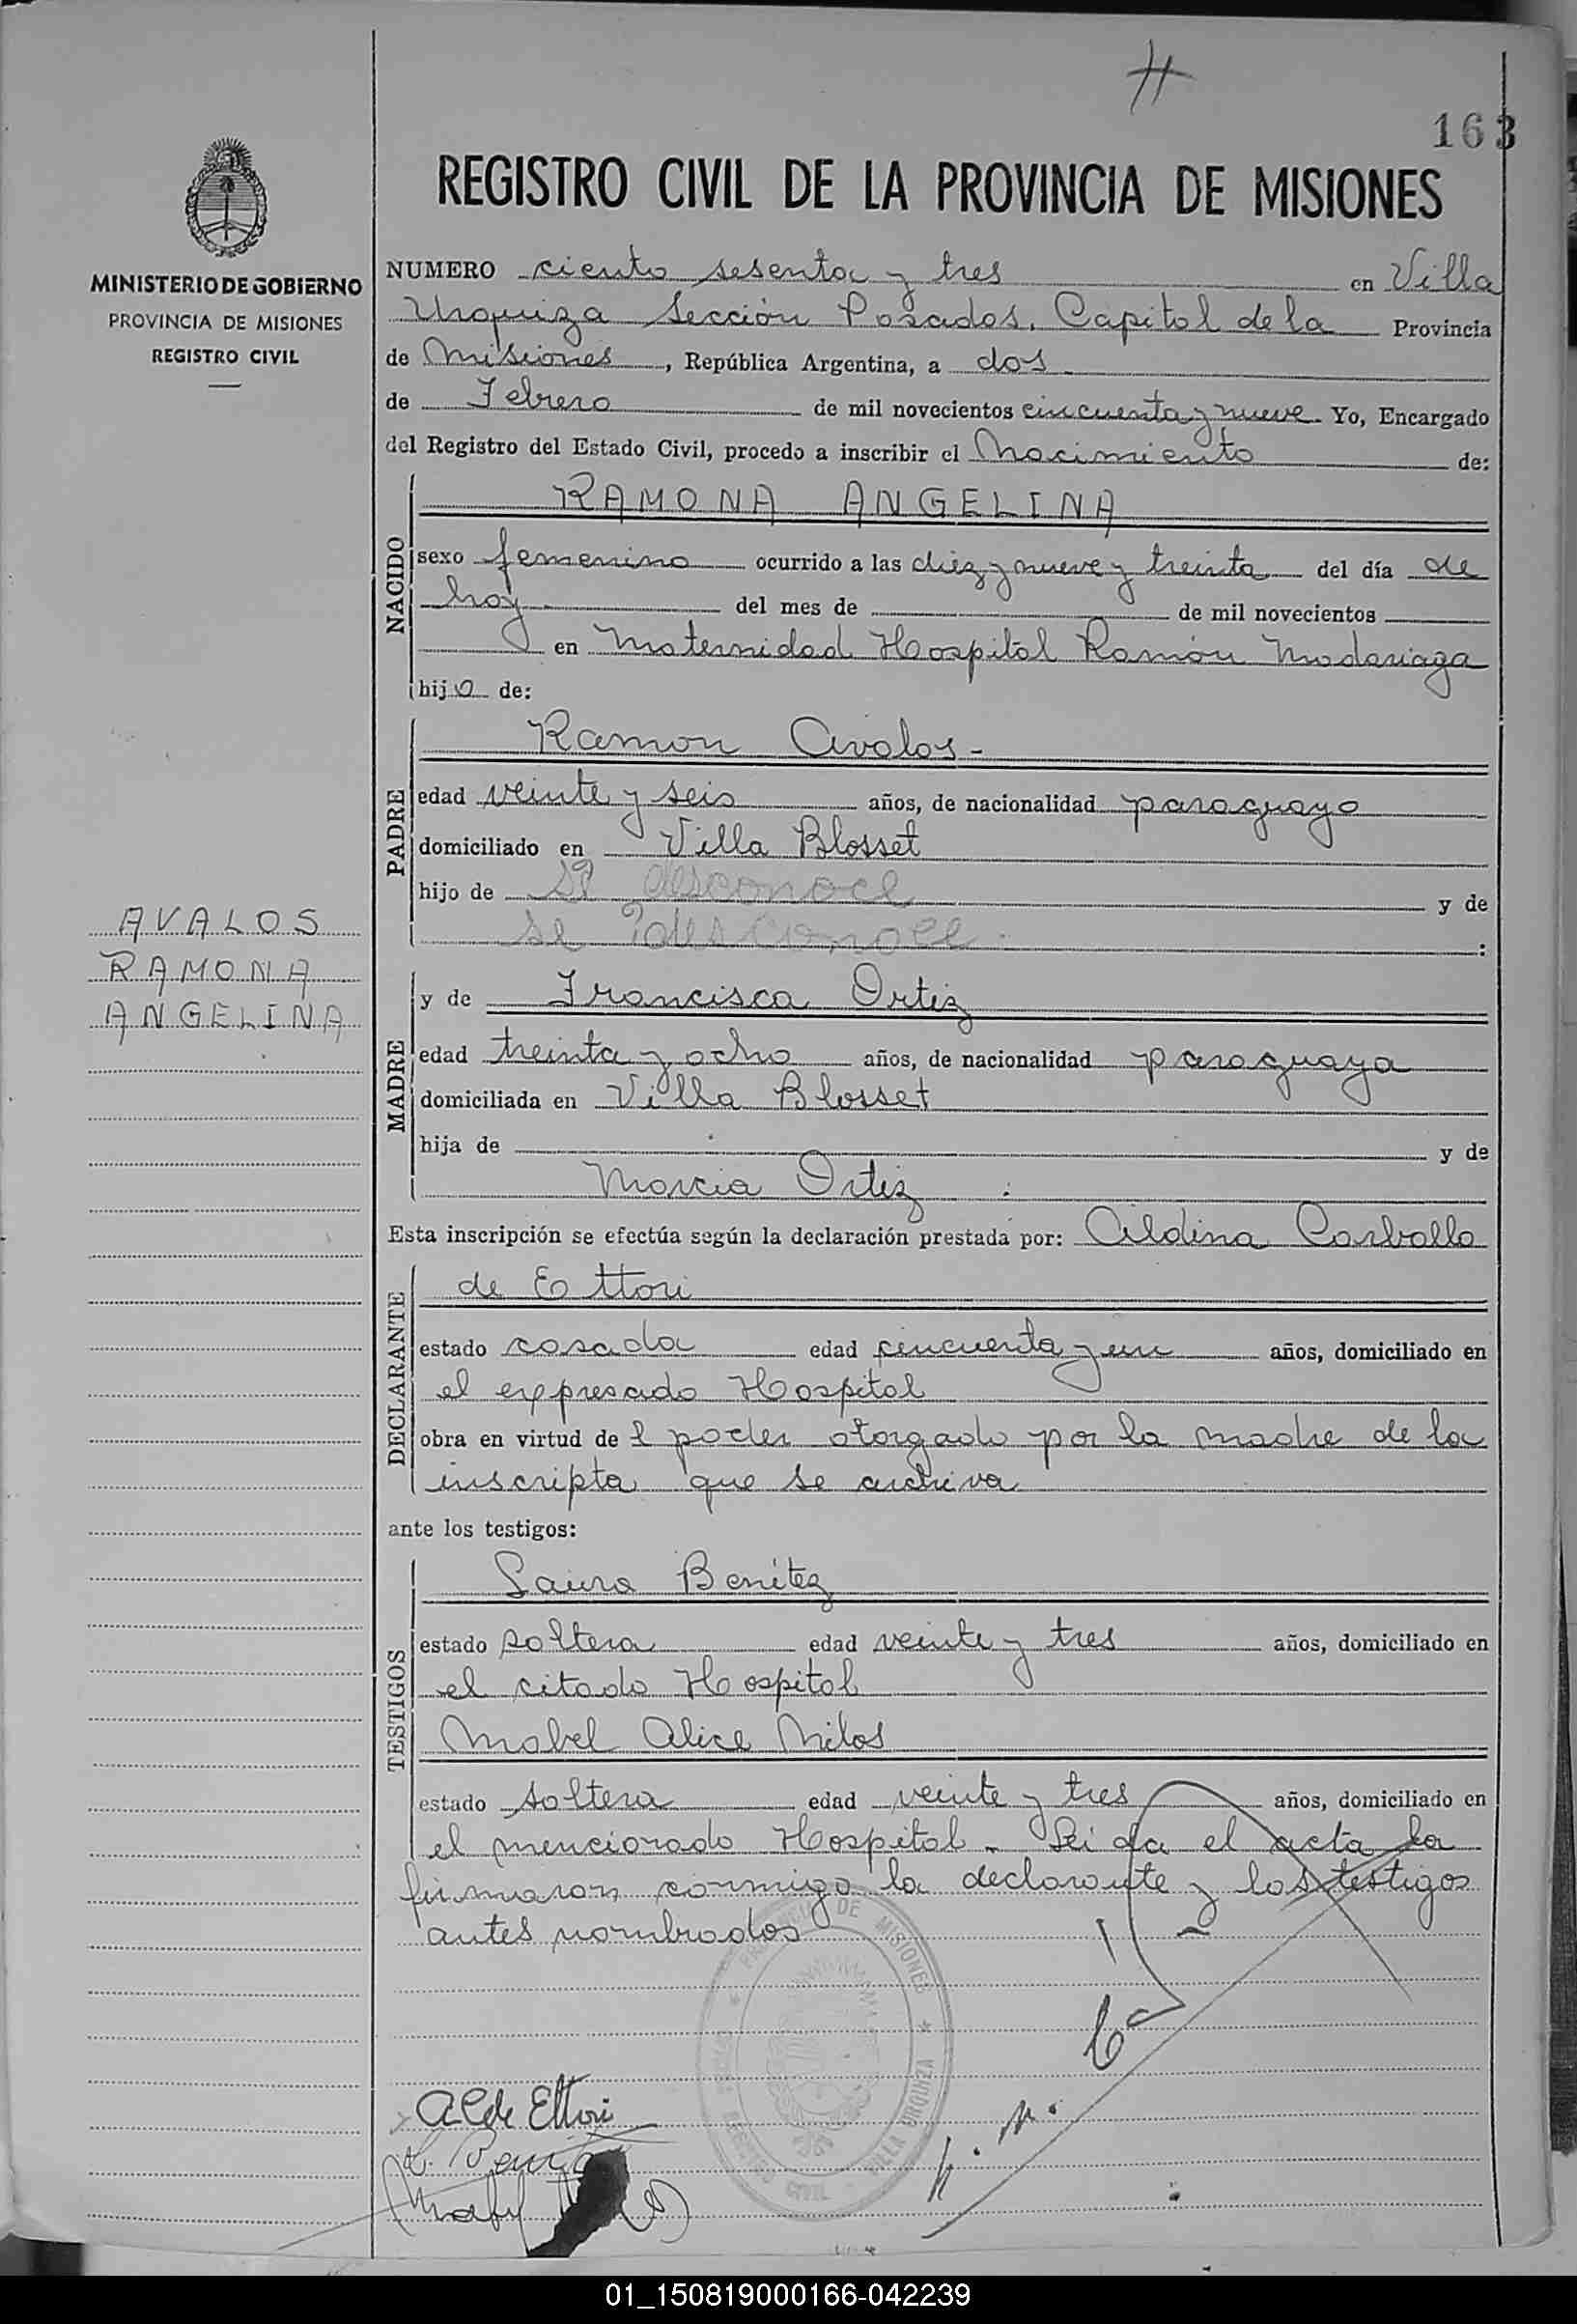 163
REGISTRO CIVIL DE LA PROVINCIA DE MISIONES
MINISTERIO DE GOBIERNO
PROVINCIA DE MISIONES
REGISTRO CIVIL
NUMERO ciento sesenta y tres en Villa
Urquiza Sección Posadas, Capital de la Provincia
de Misiones, República Argentina, a dos
de Febrero de mil novecientos cincuenta y nueve Yo, Encargado
del Registro del Estado Civil, procedo a inscribir el Nacimiento de:
NACIDO
RAMONA ANGELINA
sexo femenino ocurrido a las diez y nueve y treinta del día de
hoy del mes de de mil novecientos
en Maternidad Hospital Ramón Madariaga
hija de:
PADRE
Ramon Avalos-
edad veinte y seis años, de nacionalidad paraguayo
domiciliado en Villa Blosset
hijo de Se desconoce y de
se desconoce :
AVALOS
RAMONA
ANGELINA
MADRE
y de Francisca Ortiz
edad treinta y ocho años, de nacionalidad paraguaya
domiciliada en Villa Blosset
hija de y de
Marcia Ortiz :
Esta inscripción se efectúa según la declaración prestada por: Aldina Carballo
DECLARANTE
de Ettori
estado casada edad cincuenta y un años, domiciliado en
el expresado Hospital
obra en virtud del poder otorgado por la madre de la
inscripta que se archiva
ante los testigos:
TESTIGOS
Laura Benitez
estado soltera edad veinte y tres años, domiciliado en
el citado Hospital
Mabel Alice Milos
estado soltera edad veinte y tres años, domiciliado en
el mencionado Hospital. Leida el acta la
firmaron conmigo la declarante y los testigos
antes nombrados
PROVINCIA DE MISIONES
REGISTRO CIVIL
VILLA URQUIZA
A C de Ettori
L. Benitez
Mabel
01_150819000166-042239